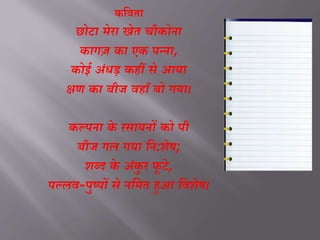 कविता
छोटा मेरा खेत चौकोना
कागज़ का एक पन्ना,
कोई अंधड़ कहीं से आया
क्षण का बीज वहाँ बो गया।
कल्पना के रसायनों को पी
बीज गल गया नि:शेष;
शब्द के अंकुर फूटे,
पल्लव-पुष्पों से नमित हुआ विशेष।